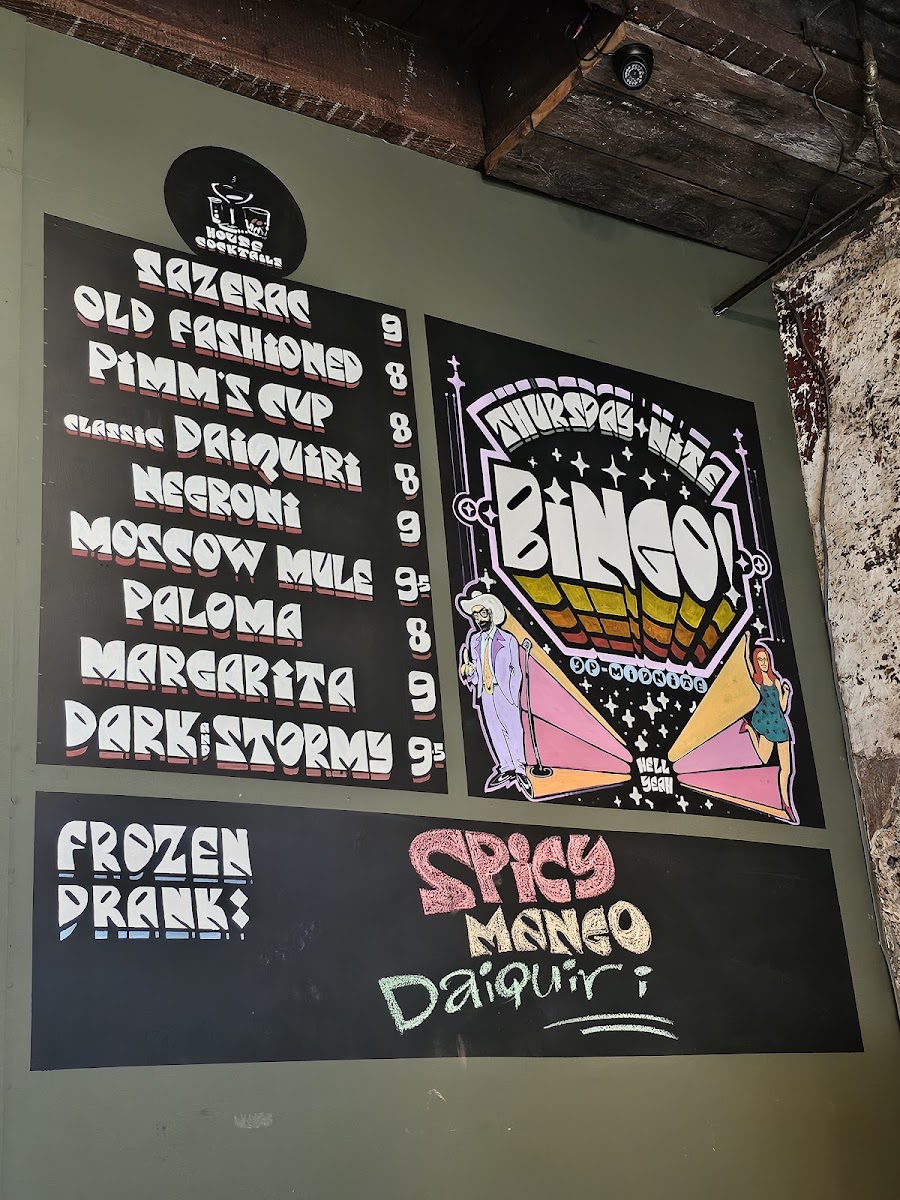 HOUSE
COCKTAILS
SAZERAC 9
OLD FASHIONED 8
PIMM'S CUP 8
CLASSIC DAIQUIRI 8
NEGRONI 9
MOSCOW MULE 9.5
PALOMA 8
MARGARITA 9
DARK AND STORMY 9.5
THURSDAY NITE
BINGO!
9P-MIDNITE
HELL
YEAH
FROZEN
DRANK:
SPICY
MANGO
Daiquiri